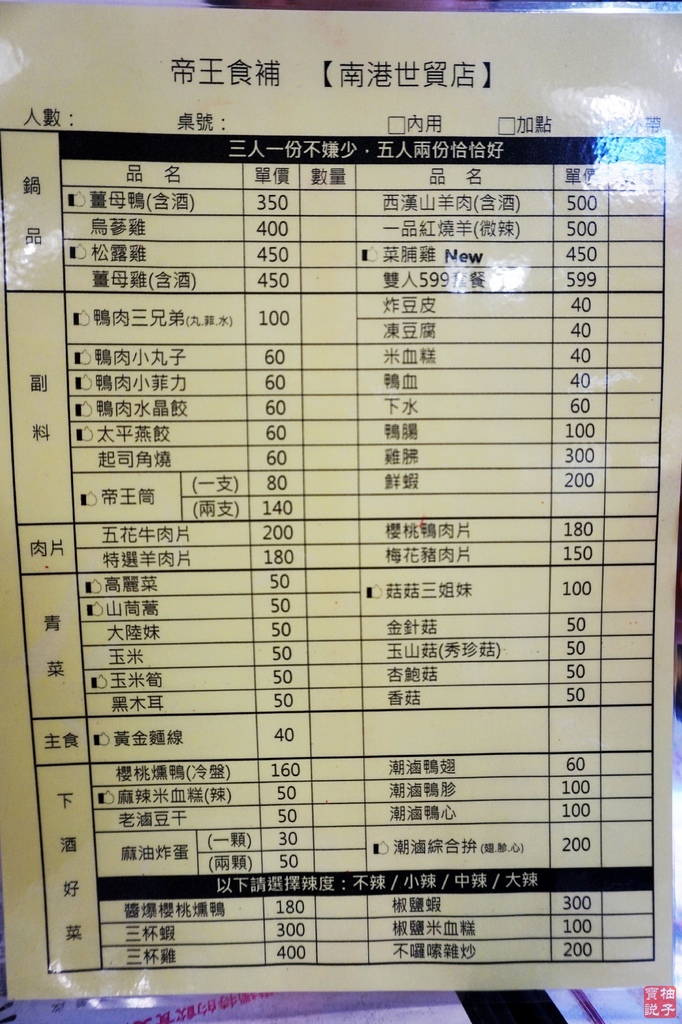 帝王食補 【南港世貿店】
人數： 桌號： □內用 □加點 外帶
三人一份不嫌少．五人兩份恰恰好
鍋品
品 名 單價 數量 品 名 單價
薑母鴨(含酒) 350 西漢山羊肉(含酒) 500
烏蔘雞 400 一品紅燒羊(微辣) 500
松露雞 450 菜脯雞 New 450
薑母雞(含酒) 450 雙人599套餐 599
副料
鴨肉三兄弟(丸.菲.水) 100 炸豆皮 40
凍豆腐 40
鴨肉小丸子 60 米血糕 40
鴨肉小菲力 60 鴨血 40
鴨肉水晶餃 60 下水 60
太平燕餃 60 鴨腸 100
起司角燒 60 雞胇 300
帝王筒 (一支) 80 鮮蝦 200
(兩支) 140
肉片
五花牛肉片 200 櫻桃鴨肉片 180
特選羊肉片 180 梅花豬肉片 150
青菜
高麗菜 50 菇菇三姐妹 100
山茼蒿 50
大陸妹 50 金針菇 50
玉米 50 玉山菇(秀珍菇) 50
玉米筍 50 杏鮑菇 50
黑木耳 50 香菇 50
主食
黃金麵線 40
下酒好菜
櫻桃燻鴨(冷盤) 160 潮滷鴨翅 60
麻辣米血糕(辣) 50 潮滷鴨胗 100
老滷豆干 50 潮滷鴨心 100
麻油炸蛋 (一顆) 30 潮滷綜合拚(翅.胗.心) 200
(兩顆) 50
以下請選擇辣度：不辣/小辣/中辣/大辣
醬爆櫻桃燻鴨 180 椒鹽蝦 300
三杯蝦 300 椒鹽米血糕 100
三杯雞 400 不囉嗦雜炒 200
柚子
寶說